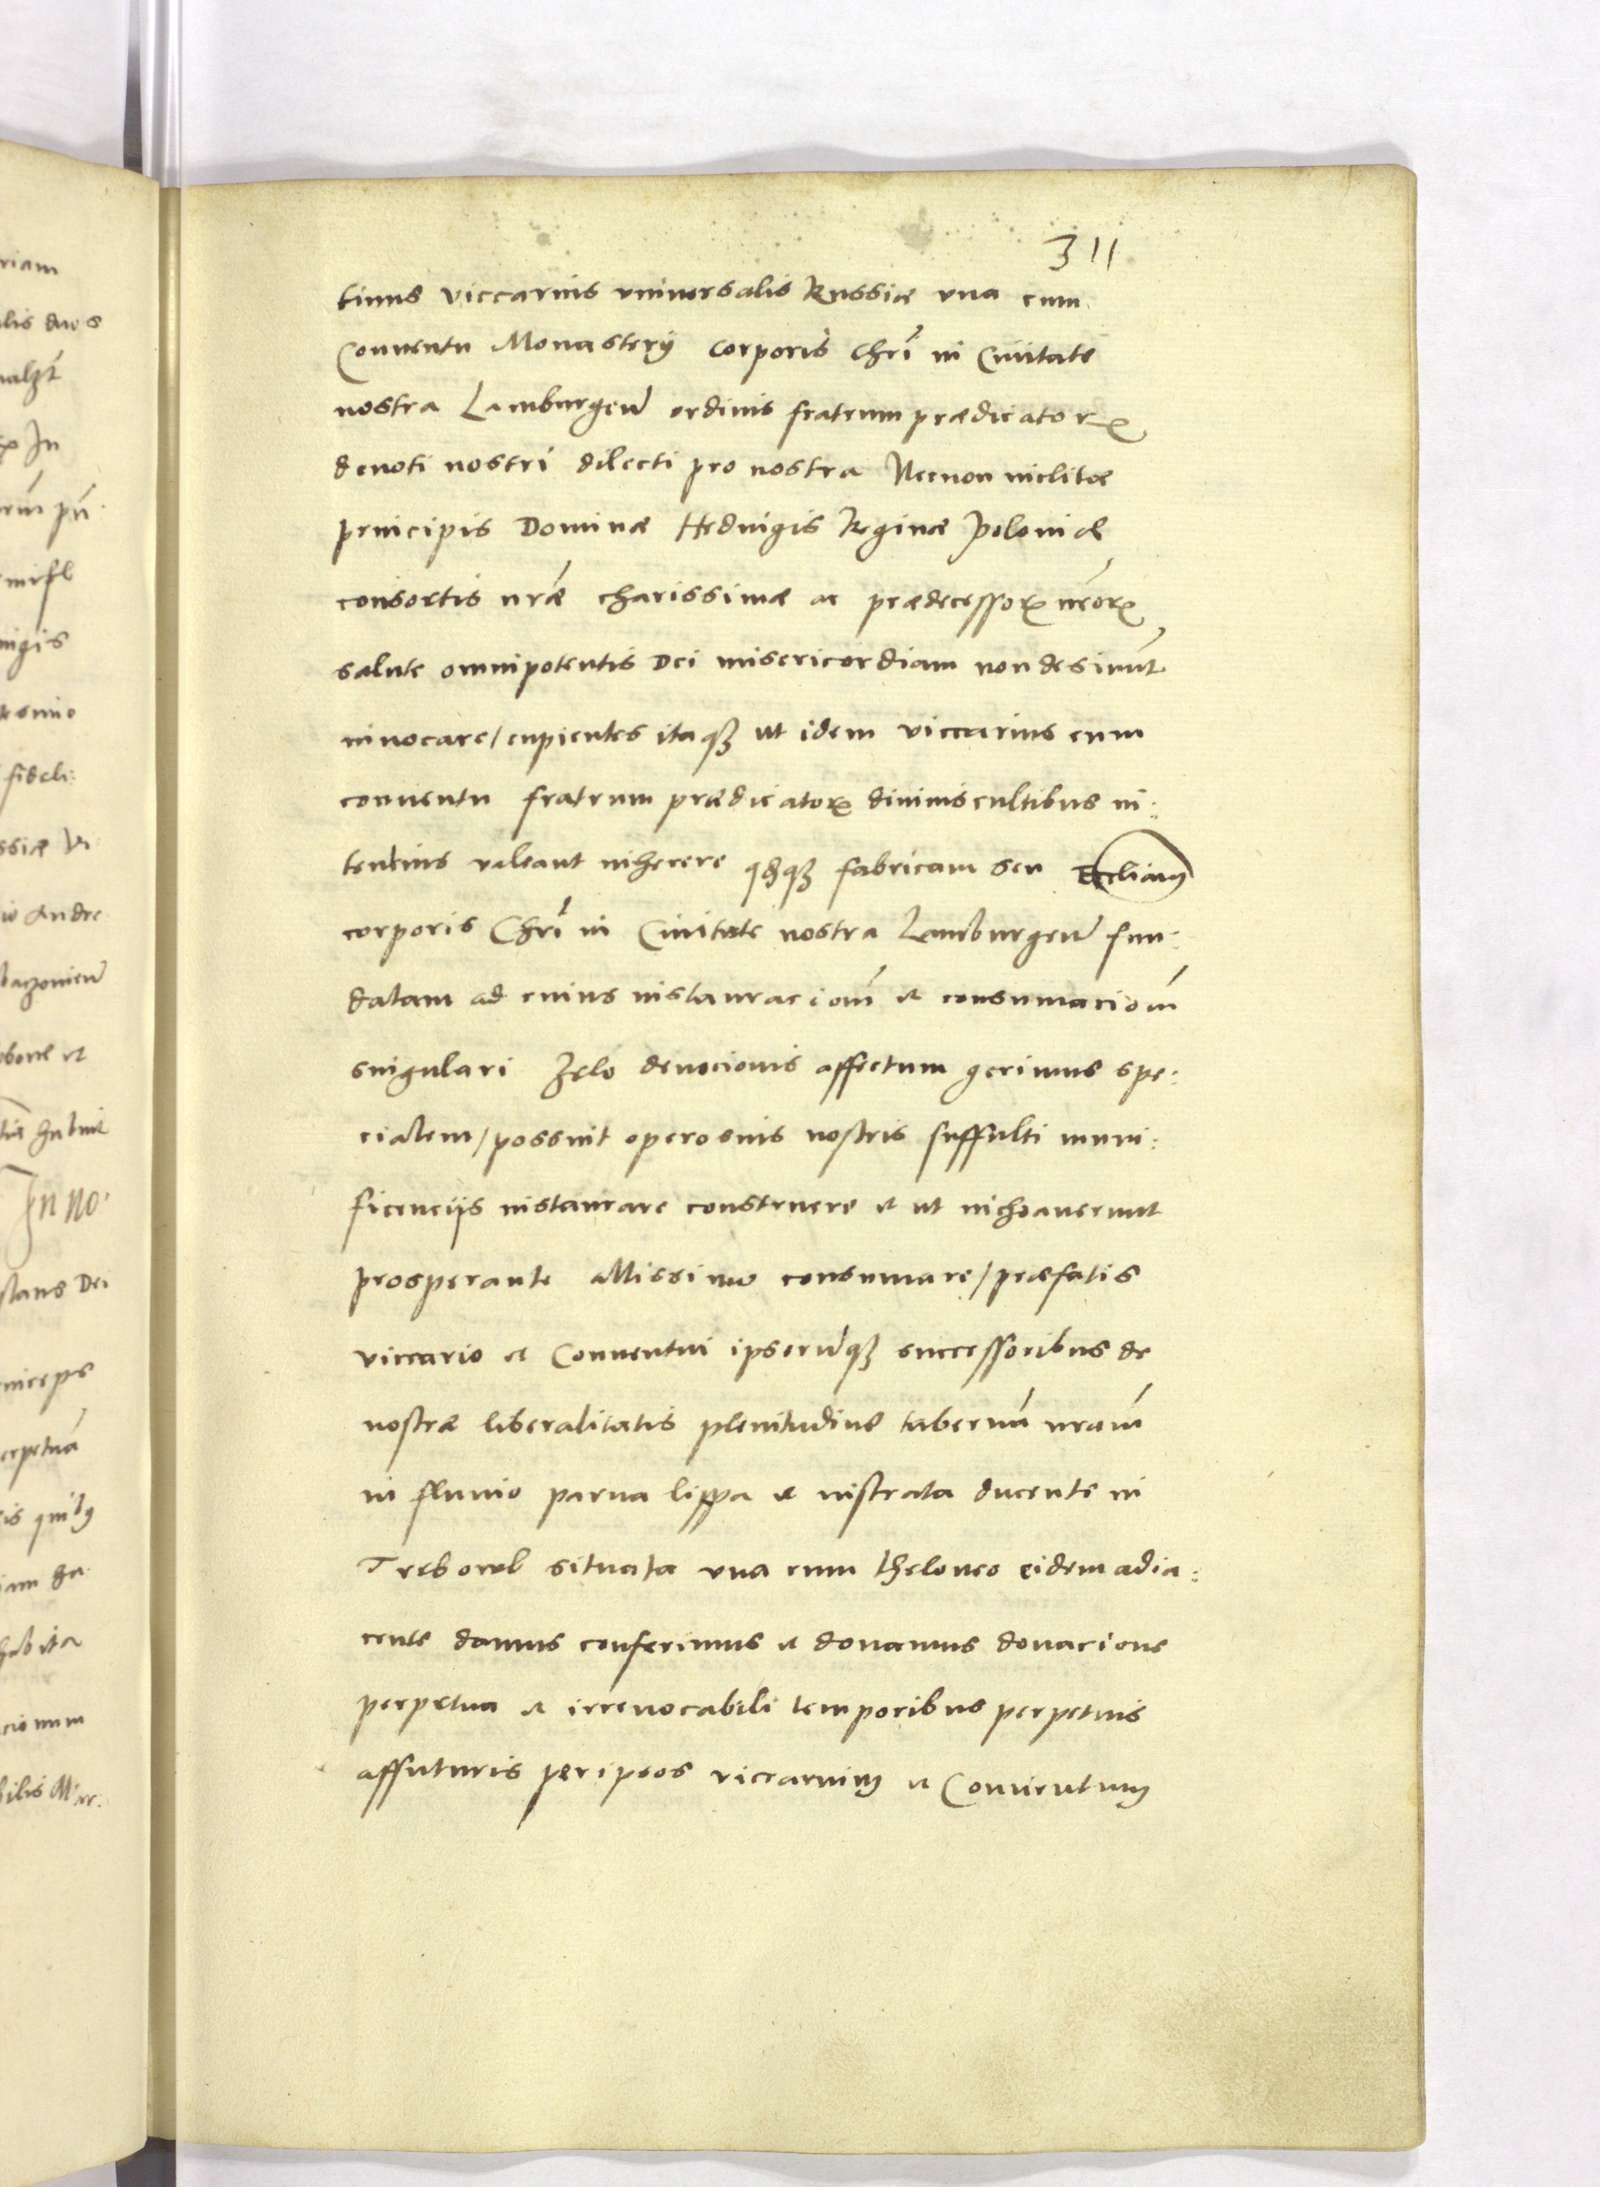 311
tinus viccarius universalis Russiæ vna cum
Conventu Monasterij corporis Chri̅ in Ciuitate
nostra Lamburgen̅ ordinis fratrum prædicator
deuoti nostri dilecti pro nostra Necnon inclitæ
principis Dominæ Heduigis Reginæ Poloniæ
consortis nræ charissimæ ac prædecessor nror
salute omnipotentis Dei misericordiam non desinu̅t
inuocare / cupientes itaq3 ut idem viccarius cum
conuentu fratrum prædicator diuinis cultibus in:
tentius valeant inherere fabricam seu Eccliam
corporis Chri̅ in Ciuitate nostra Lamburgen̅ fun:
datam ad cuius instauraciom̅ et consumaciom̅
singulari Zelo deuocionis affectum gerimus spe:
cialem / possint operosius nostris suffulti muni:
ficencijs instaurare construere et ut inchoauerunt
prosperante altissimo consumare / præfatis
viccario et Conuentui ipsoru̅q3 successoribus de
nostræ liberalitatis plenitudine tabernam̅ nram̅
in fluuio parua lippa et in strata ducente in
Trebowl situata vna cum theloneo eidem adia:
cente damus conferimus et donamus donacione
perpetua et irreuocabili temporibus perpetuis
affuturis per ipsos viccarium et Conuentum
riam
In
nigis
fideli:
Andre
habuit
In no:
stans Dei
inceps
erpetua̅
habita